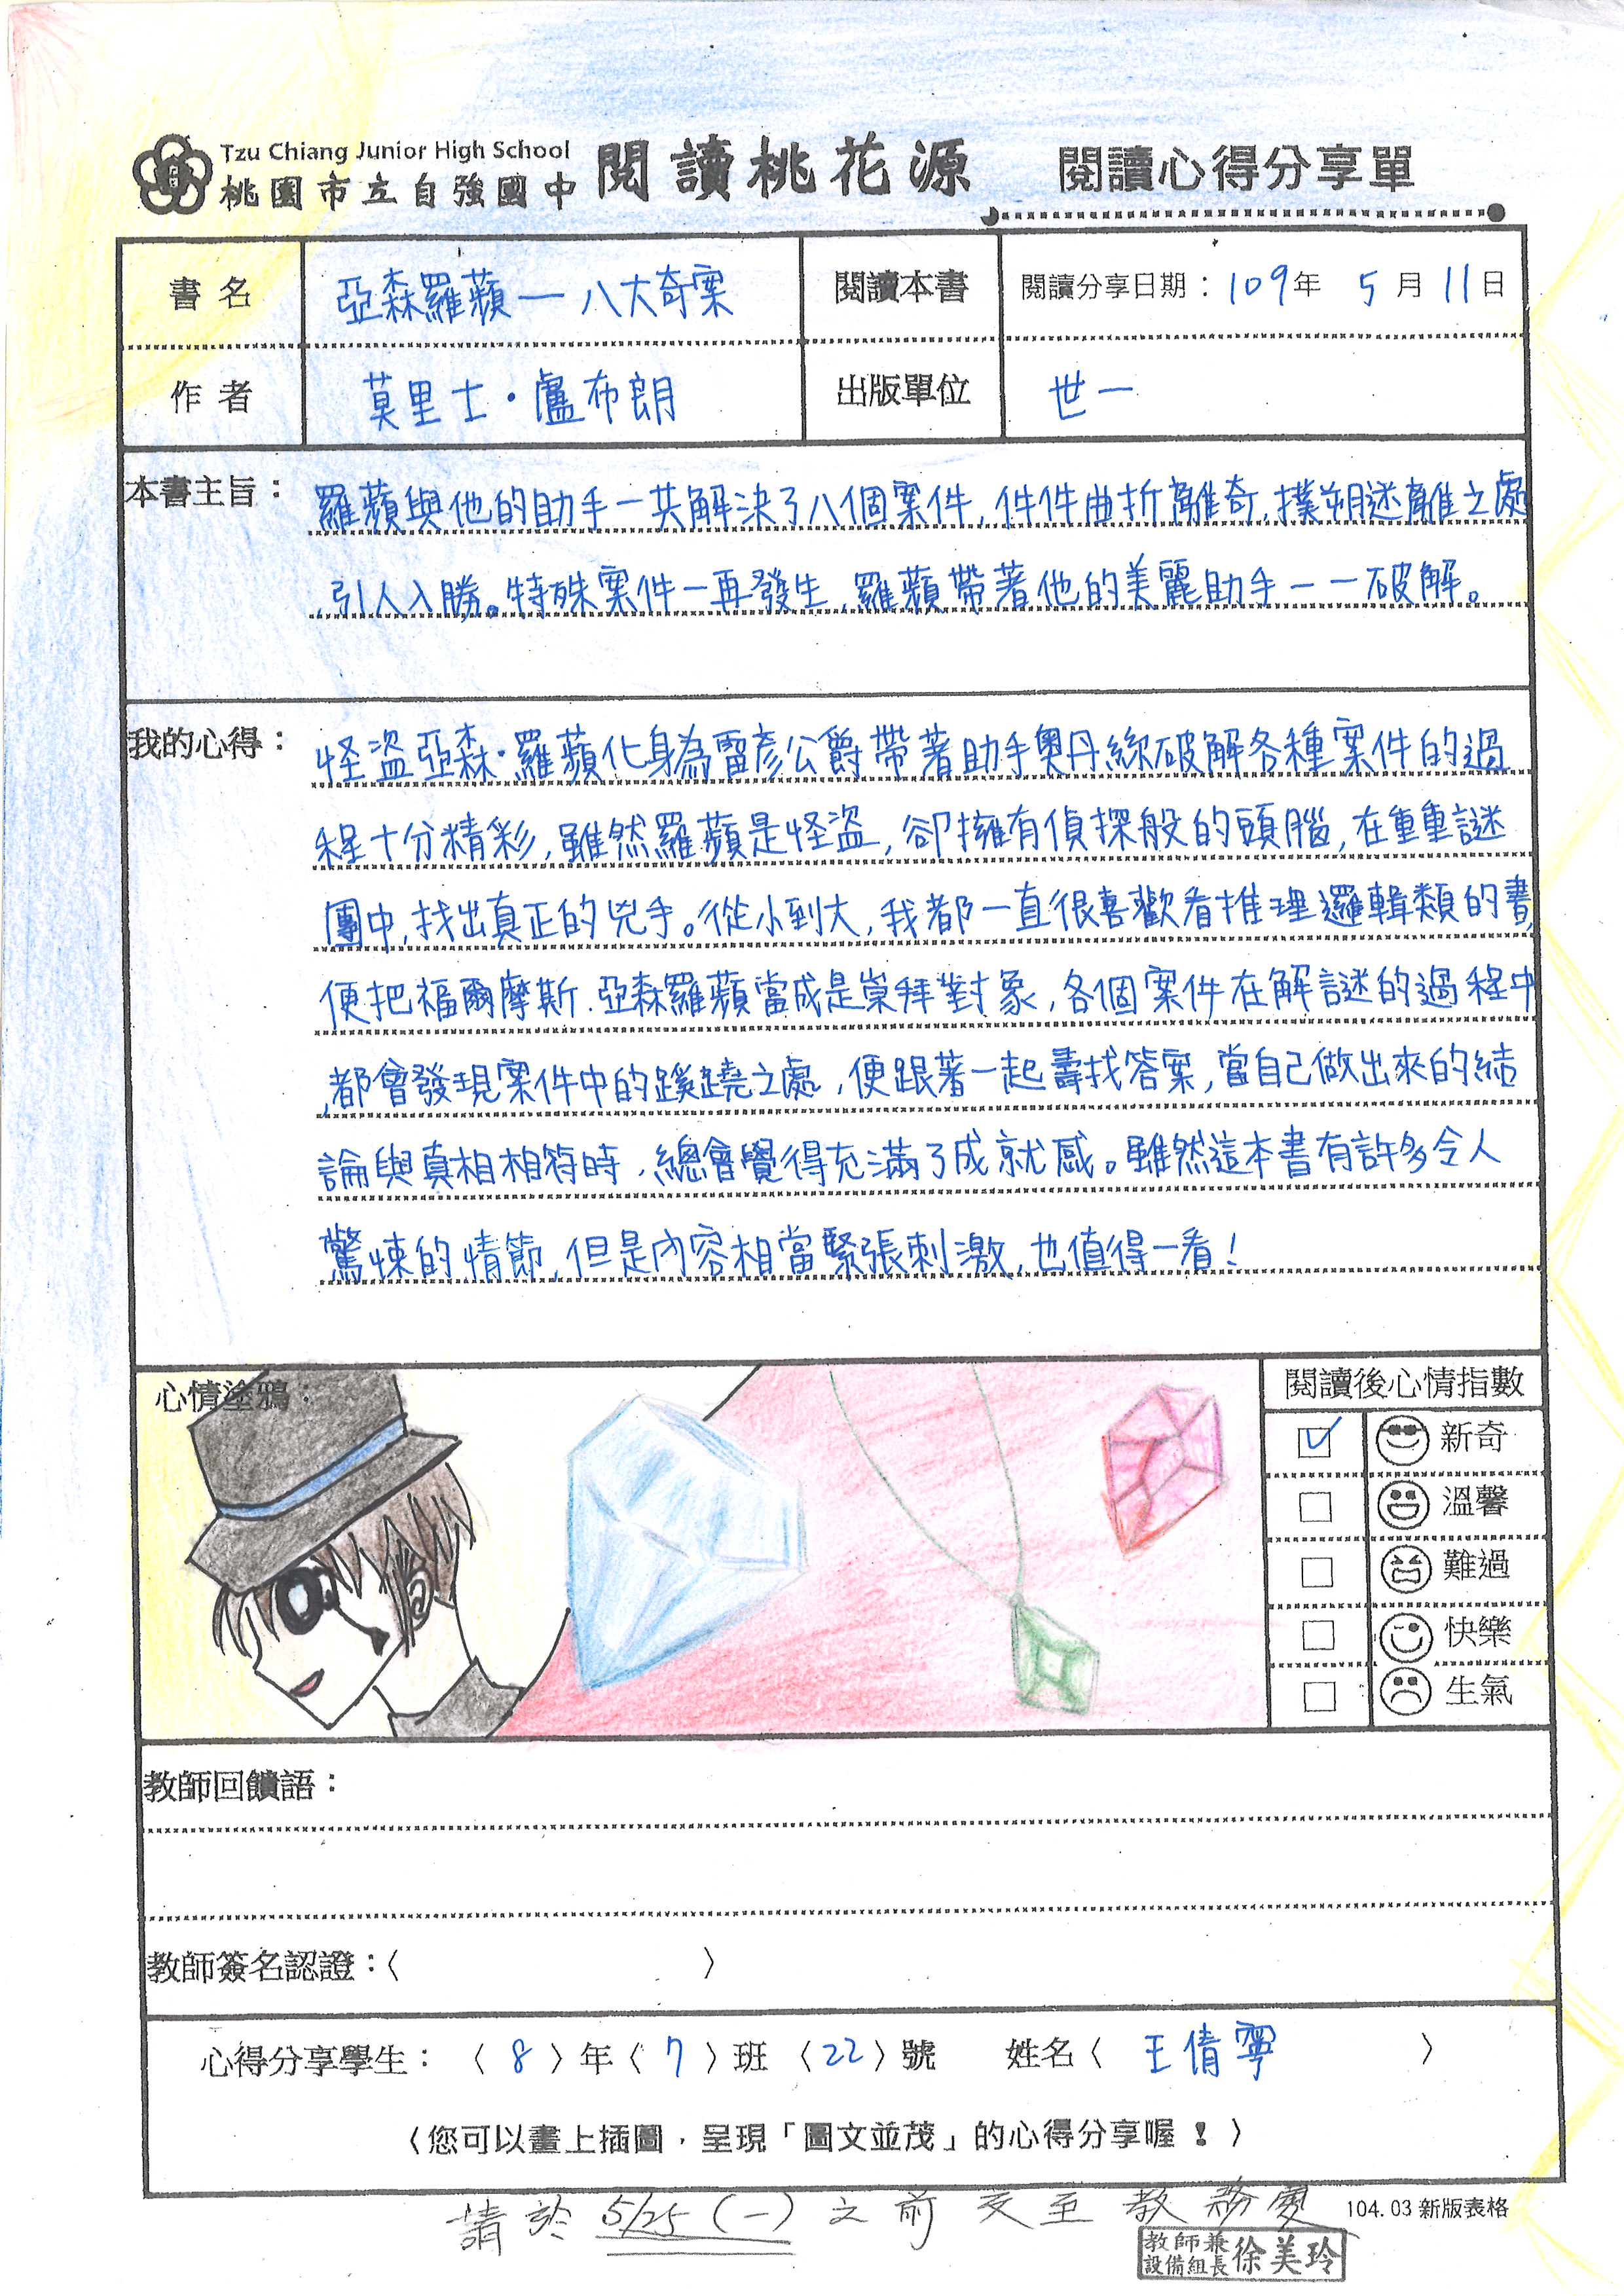 Tzu Chiang Junior High School
桃園市立自強國中 閱讀桃花源 閱讀心得分享單
書名 亞森羅蘋—八大奇案 閱讀本書 閱讀分享日期：109年 5月11日
作者 莫里士·盧布朗 出版單位 世一
本書主旨：羅蘋與他的助手一共解決了八個案件,件件曲折離奇,撲朔迷離之處
,引人入勝。特殊案件一再發生,羅蘋帶著他的美麗助手一一破解。
我的心得：怪盜亞森·羅蘋化身為雷彥公爵帶著助手奧丹絲破解各種案件的過
程十分精彩,雖然羅蘋是怪盜,卻擁有偵探般的頭腦,在重重謎
團中,找出真正的兇手。從小到大,我都一直很喜歡看推理邏輯類的書,
便把福爾摩斯.亞森羅蘋當成是崇拜對象,各個案件在解謎的過程中
,都會發現案件中的蹊蹺之處,便跟著一起尋找答案,當自己做出來的結
論與真相相符時,總會覺得充滿了成就感。雖然這本書有許多令人
驚悚的情節,但是內容相當緊張刺激,也值得一看!
心情塗鴉：
閱讀後心情指數
新奇
溫馨
難過
快樂
生氣
教師回饋語：
教師簽名認證：〈 〉
心得分享學生：〈8〉年〈7〉班〈22〉號 姓名〈王倩寧〉
〈您可以畫上插圖，呈現「圖文並茂」的心得分享喔！〉
請於 5/25(一)之前交至教務處
104.03新版表格
教師兼
設備組長 徐美玲